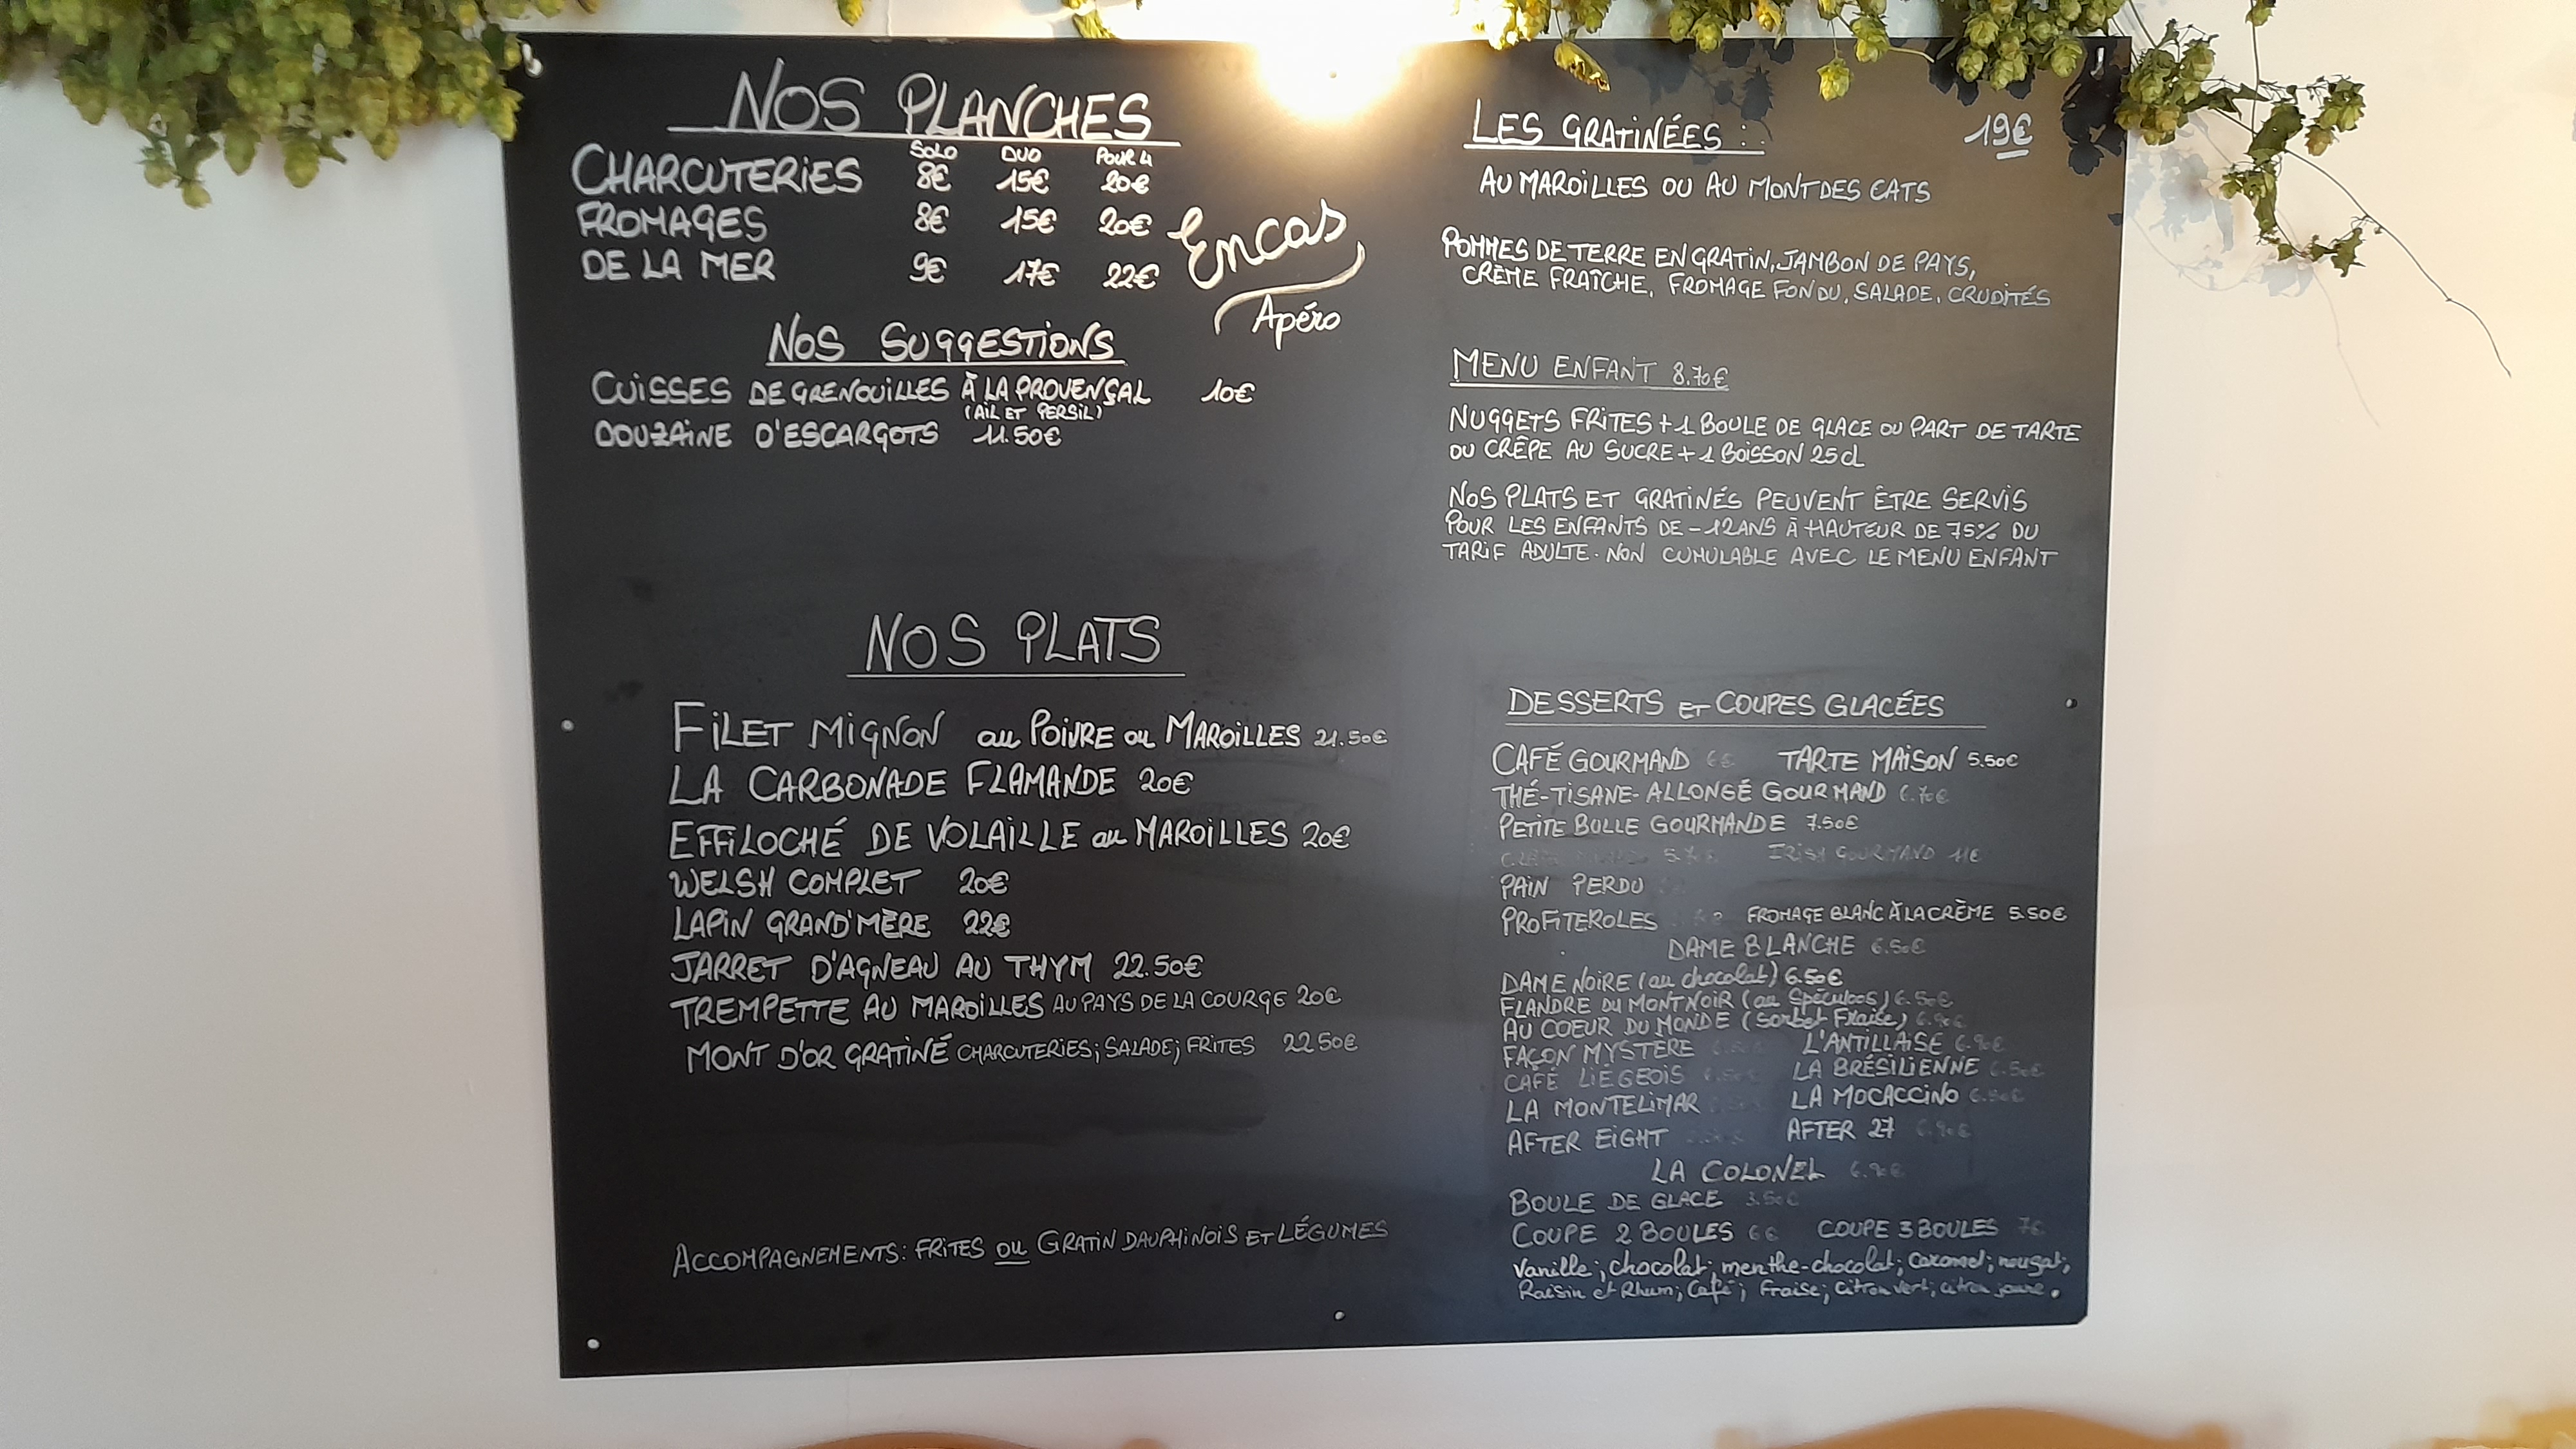 NOS PLANCHES
SOLO DUO POUR 4
CHARCUTERIES 8€ 15€ 20€
FROMAGES 8€ 15€ 20€
DE LA MER 9€ 17€ 22€
Encas
Apéro
NOS SUGGESTIONS
CUISSES DE GRENOUILLES À LA PROVENÇAL 10€
(AIL ET PERSIL)
DOUZAINE D'ESCARGOTS 11.50€
NOS PLATS
FILET MIGNON au POIVRE ou MAROILLES 21.50€
LA CARBONADE FLAMANDE 20€
EFFILOCHÉ DE VOLAILLE au MAROILLES 20€
WELSH COMPLET 20€
LAPIN GRAND'MÈRE 22€
JARRET D'AGNEAU AU THYM 22.50€
TREMPETTE AU MAROILLES AU PAYS DE LA COURGE 20€
MONT D'OR GRATINÉ CHARCUTERIES; SALADE; FRITES 22.50€
ACCOMPAGNEMENTS: FRITES OU GRATIN DAUPHINOIS ET LÉGUMES
LES GRATINÉES : 19€
AU MAROILLES OU AU MONT DES CATS
POMMES DE TERRE EN GRATIN, JAMBON DE PAYS,
CRÈME FRAÎCHE, FROMAGE FONDU, SALADE, CRUDITÉS
MENU ENFANT 8.70€
NUGGETS FRITES + 1 BOULE DE GLACE OU PART DE TARTE
OU CRÊPE AU SUCRE + 1 BOISSON 25cL
NOS PLATS ET GRATINÉS PEUVENT ÊTRE SERVIS
POUR LES ENFANTS DE -12ANS À HAUTEUR DE 75% DU
TARIF ADULTE. NON CUMULABLE AVEC LE MENU ENFANT
DESSERTS ET COUPES GLACÉES
CAFÉ GOURMAND 6€ TARTE MAISON 5.50€
THÉ-TISANE-ALLONGÉ GOURMAND 6.70€
PETITE BULLE GOURMANDE 7.50€
IRISH GOURMAND 11€
PAIN PERDU
PROFITEROLES FROMAGE BLANC À LA CRÈME 5.50€
DAME BLANCHE 6.50€
DAME NOIRE (au chocolat) 6.50€
FLANDRE DU MONT NOIR (au Spéculoos) 6.50€
AU COEUR DU MONDE (Sorbet Fraise) 6.90€
FAÇON MYSTÈRE L'ANTILLAISE 6.90€
CAFÉ LIÉGEOIS LA BRÉSILIENNE 6.50€
LA MONTELIMAR LA MOCACCINO 6.50€
AFTER EIGHT AFTER 27 6.90€
LA COLONEL 6.90€
BOULE DE GLACE 3.50€
COUPE 2 BOULES 6€ COUPE 3 BOULES 7€
Vanille; chocolat; menthe-chocolat; Caramel; nougat;
Raisin et Rhum; Café; Fraise; Citron vert; citron jaune.